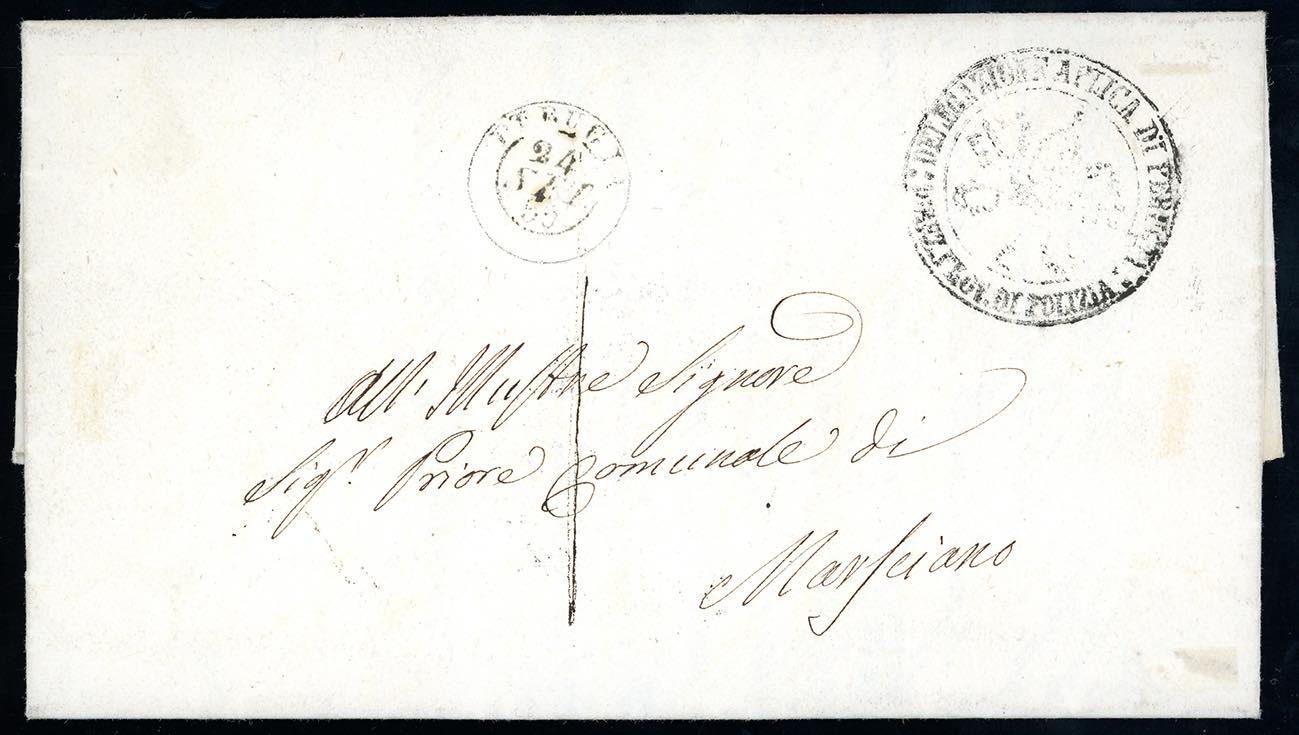 PERUGIA
24
55
DELEGAZIONE APLICA DI PERUGIA
DI POLIZIA
All' Illustre Signore
Sig.r Priore Comunale di
Marsciano